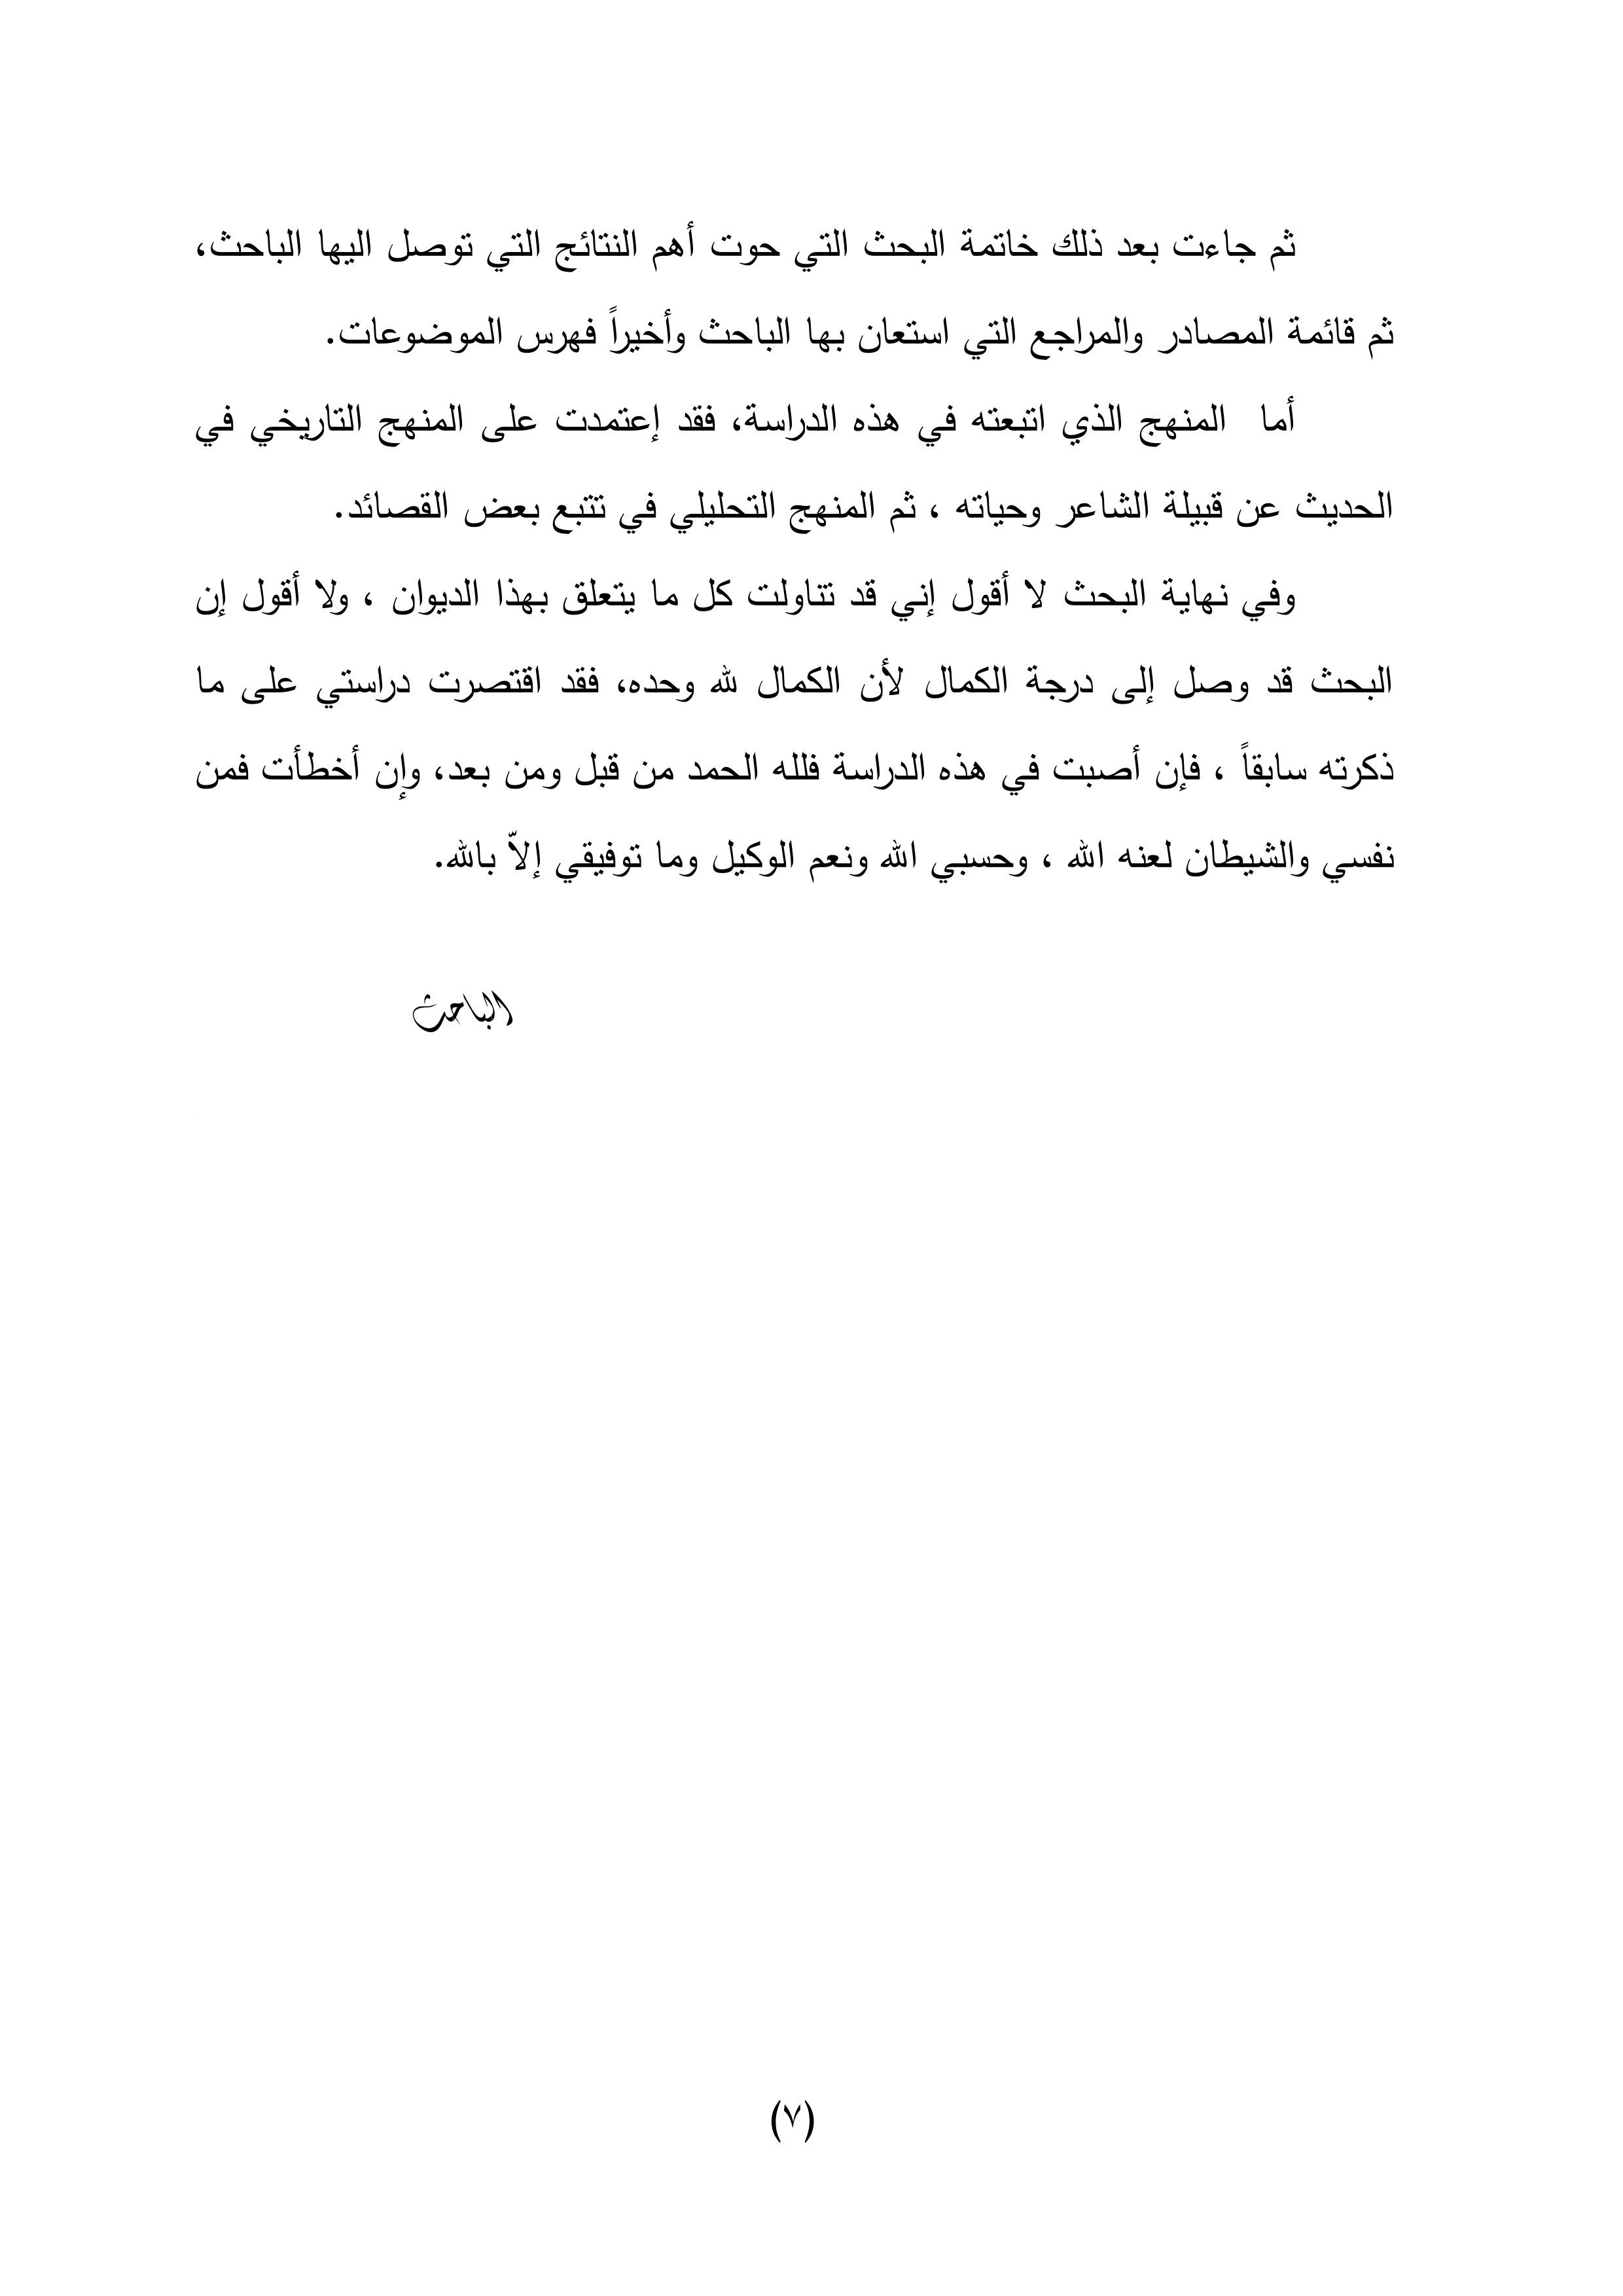 ثم جاءت بعد ذلك خاتمة البحث التي حوت أهم النتائج التي توصل اليها الباحث،
ثم قائمة المصادر والمراجع التي استعان بها الباحث وأخيراً فهرس الموضوعات.
أما المنهج الذي اتبعته في هذه الدراسة، فقد إعتمدت على المنهج التاريخي في
الحديث عن قبيلة الشاعر وحياته ، ثم المنهج التحليلي في تتبع بعض القصائد.
وفي نهاية البحث لا أقول إني قد تناولت كل ما يتعلق بهذا الديوان ، ولا أقول إن
البحث قد وصل إلى درجة الكمال لأن الكمال لله وحده، فقد اقتصرت دراستي على ما
ذكرته سابقاً ، فإن أصبت في هذه الدراسة فلله الحمد من قبل ومن بعد، وإن أخطأت فمن
نفسي والشيطان لعنه الله ، وحسبي الله ونعم الوكيل وما توفيقي إلاّ بالله.
الباحث
(٧)